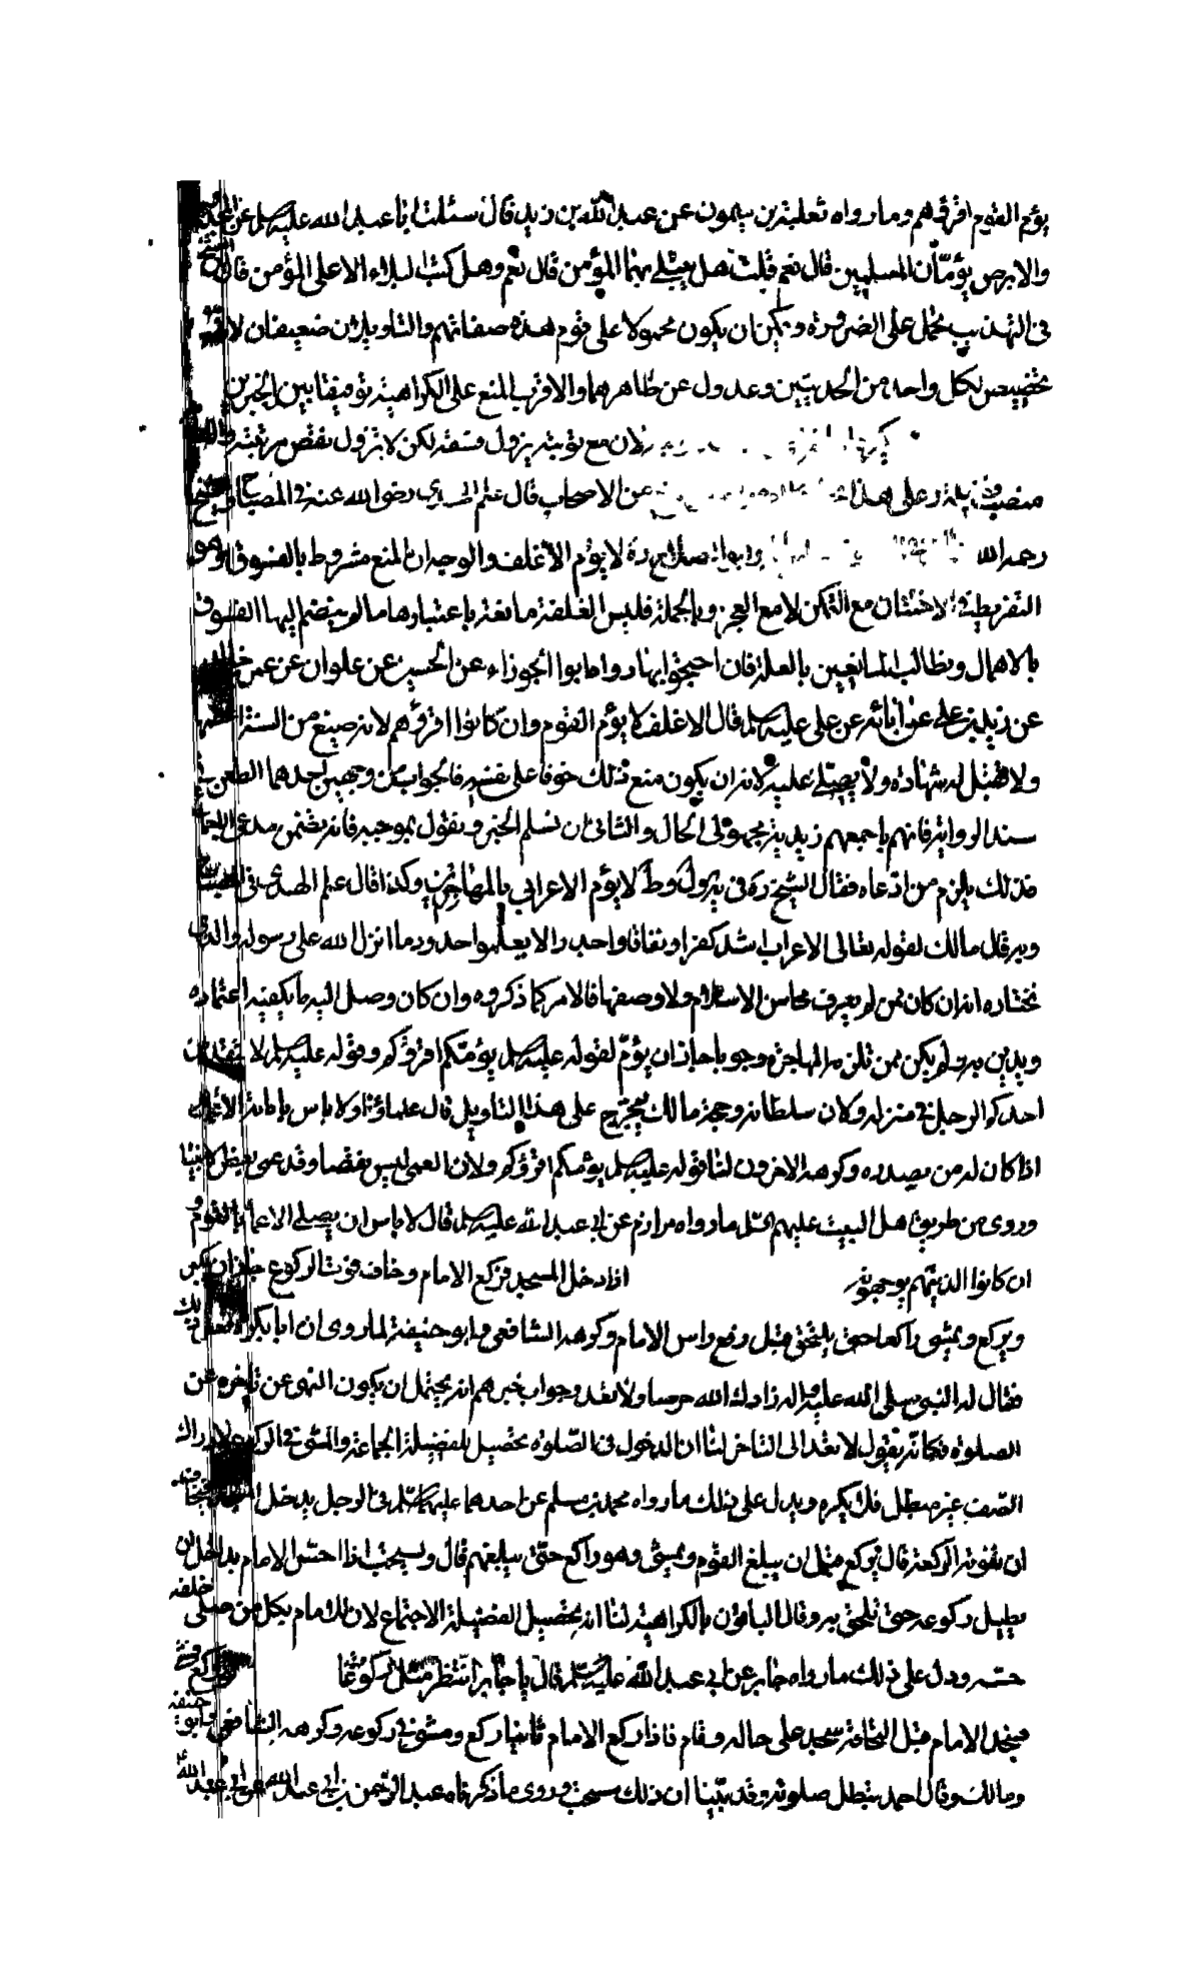 يؤم القوم اقرؤهم وما رواه ثعلبة بن ميمون عن عبد الله بن زيد قال سئلت ابا عبد الله عليه السلم عن المجذوم
والابرص يؤمّان المسلمين قال نعم قلت هل يبتلي بهما المؤمن قال نعم وهل كتب البلاء الا على المؤمن قال الشيخ
في التهذيب محمل على الضرورة ويمكن ان يكون محمولا على قوم هذه صفاتهم والتاويلان ضعيفان لان
تخصيص لكل واحد من الحديثين وعدول عن ظاهرهما والاقرب المنع على الكراهية توفيقا بين الخبرين
لان مع توبته يزول فسقه لكن لا يزول نقص مرتبته
منصب فضيلة وعلى هذا من الاصحاب قال علم الهدى رضي الله عنه في المصباح والشيخ
رحمه الله وابوا الصلاح ره لا يؤم الاغلف والوجه ان المنع مشروط بالفسوق وهو
التفريط في الاختتان مع التمكن لا مع العجز وبالجملة فليس الغلفة مانعة باعتبارها ما لم ينضم اليها الفسوق
بالاهمال ونطالب المانعين بالعلة فان احتجوا بما رواه ابوا الجوزاء عن الحسين عن علوان عن عمرو بن خالد
عن زيد بن علي عن ابائه عن علي عليه السلم قال الاغلف لا يؤم القوم وان كانوا اقرؤهم لانه ضيع من السنة اعظمها
ولا تقبل له شهادة ولا يصلى عليه الا ان يكون منع ذلك خوفا على نفسه فالجواب من وجهين احدهما الطعن في
سند الرواية فانهم باجمعهم زيدية مجهولى الحال والثانى ان نسلم الخبر ونقول بموجبه فانه تضمن ما
فذلك يلزم من ادعاه فقال الشيخ ره في يه ول وط لا يؤم الاعرابي بالمهاجرين وكذا قال علم الهدى في المصباح
وبه قال مالك لقوله تعالى الاعراب اشد كفرا ونفاقا واجدر الا يعلموا حدود ما انزل الله على رسوله والذي
نختاره انه ان كان ممن لم يعرف محاسن الاسلام ولا وصفها فالامر كما ذكروه وان كان وصل اليه ما يكفيه اعتماده
ويدين به ولم يكن ممن تلزمه المهاجرة وجوبا جاز ان يؤمّ لقوله عليه السلم يؤمّكم اقرؤكم وقوله عليه السلم لا يتقدمن
احدكم الرجل في منزله وكان سلطانه وحجة مالك تخرج على هذا التاويل قال علماؤنا ولا باس بامامة الاعمى
اذا كان له من يسدده وكرهه الاخرون لنا قوله عليه السلم يؤمكم اقرؤكم ولان العمى ليس نقصا وقد عمى بعض الانبياء
وروى من طريق اهل البيت عليهم السلم ما رواه مرازم عن ابي عبد الله عليه السلم قال لا باس ان يصلي الاعمى بالقوم
ان كانوا الذينهم يوجهونه اذا دخل المسجد فركع الامام وخاف فوت الركوع جاز ان يكبر
ويركع ويمشي راكعا حتى يلتحق قبل رفع راس الامام وكرهه الشافعي وابو حنيفة لما روى ان ابا بكرة فعل ذلك
فقال له النبي صلى الله عليه واله زادك الله حرصا ولا تعد وجواب خبرهم انه يحتمل ان يكون النهى عن تاخره عن
الصلوة فكانه يقول لا تعد الى التاخر لنا ان الدخول في الصلوة تحصيل لفضيلة الجماعة والمشى في الركوع لادراك
الصف غير مبطل فلم يكره ويدل على ذلك ما رواه محمد بن مسلم عن احدهما عليهما السلم في الرجل يدخل المسجد فيخاف
ان تفوته الركعة قال يركع قبل ان يبلغ القوم ويمشي وهو راكع حتى يبلغهم قال ويستحب اذا احسّ الامام بداخل ان
يطيل ركوعه حتى تلحق به وقال الباقون بالكراهية لنا انه تحصيل لفضيلة الاجتماع لان الامام بكل من صلى خلفه
حسنه ودل على ذلك ما رواه جابر عن ابي عبد الله عليه السلم قال يا جابر انتظر مثلى ركوعك
فسجد الامام قبل التحاقه سجد على حاله وقام فاذا ركع الامام ثانيا ركع ومشى في ركوعه وكرهه الشافعي وابو حنيفة
ومالك وقال احمد تبطل صلوته وقد بيّنا ان ذلك مستحب وروى ما ذكرناه عبد الرحمن بن ابي عبد الله عن ابي عبد الله